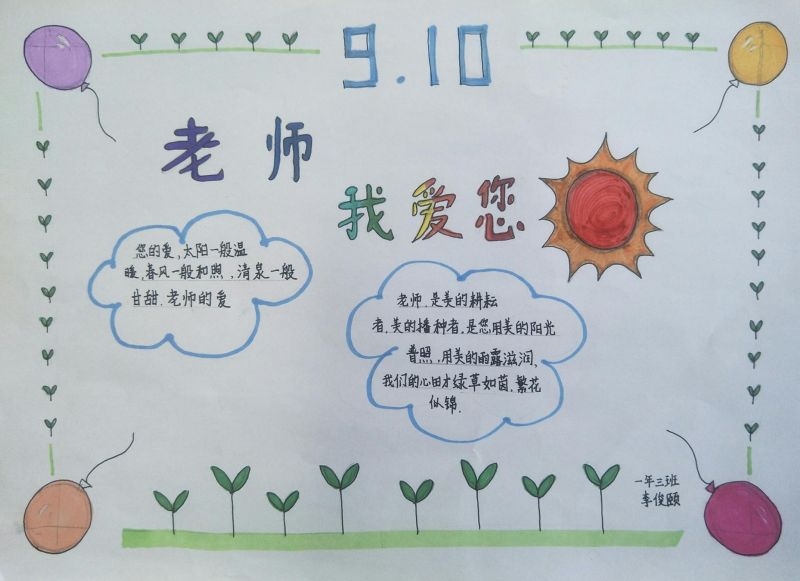 9.10
老师
我爱您
您的爱,太阳一般温
暖,春风一般和照,清泉一般
甘甜.老师的爱
老师.是美的耕耘
者,美的播种者.是您用美的阳光
普照,用美的雨露滋润,
我们的心田才绿草如茵,繁花
似锦.
一年三班
李俊颐